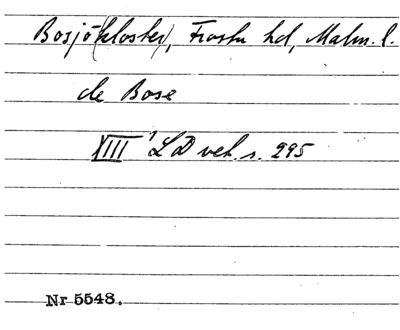 Bosjö(kloster), Frosta hd, Malm. l.
de Bose
XIII¹ LD veh. s. 295
Nr 5548.